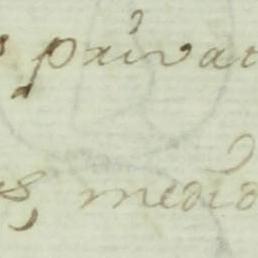 s privat
s, medio